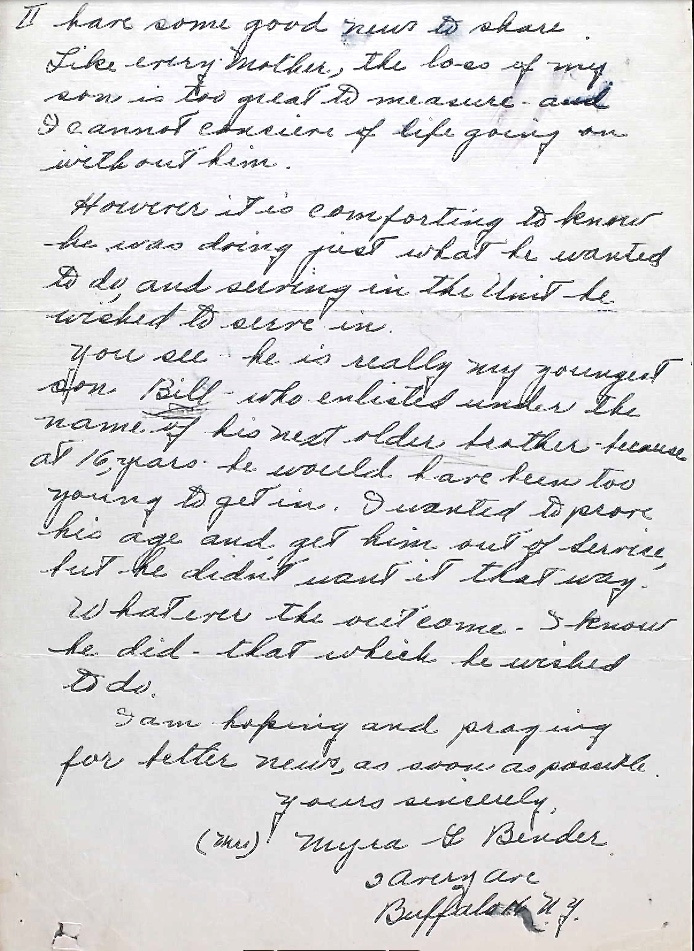 II have some good news to share.
Like every Mother, the loss of my
son is too great to measure - and
I cannot consieve of life going on
without him.
However it is comforting to know
he was doing just what he wanted
to do, and serving in the Unit he
wished to serve in.
You see - he is really my youngest
son Bill - who enlisted under the
name of his next older brother - because
at 16, years he would have been too
young to get in. I wanted to prove
his age and get him out of service,
but he didn't want it that way.
Whatever the outcome - I know
he did - that which he wished
to do.
I am hoping and praying
for better news, as soon as possible.
Yours sincerely,
(Mrs) Myra G Bender
Avery Ave
Buffalo N.Y.